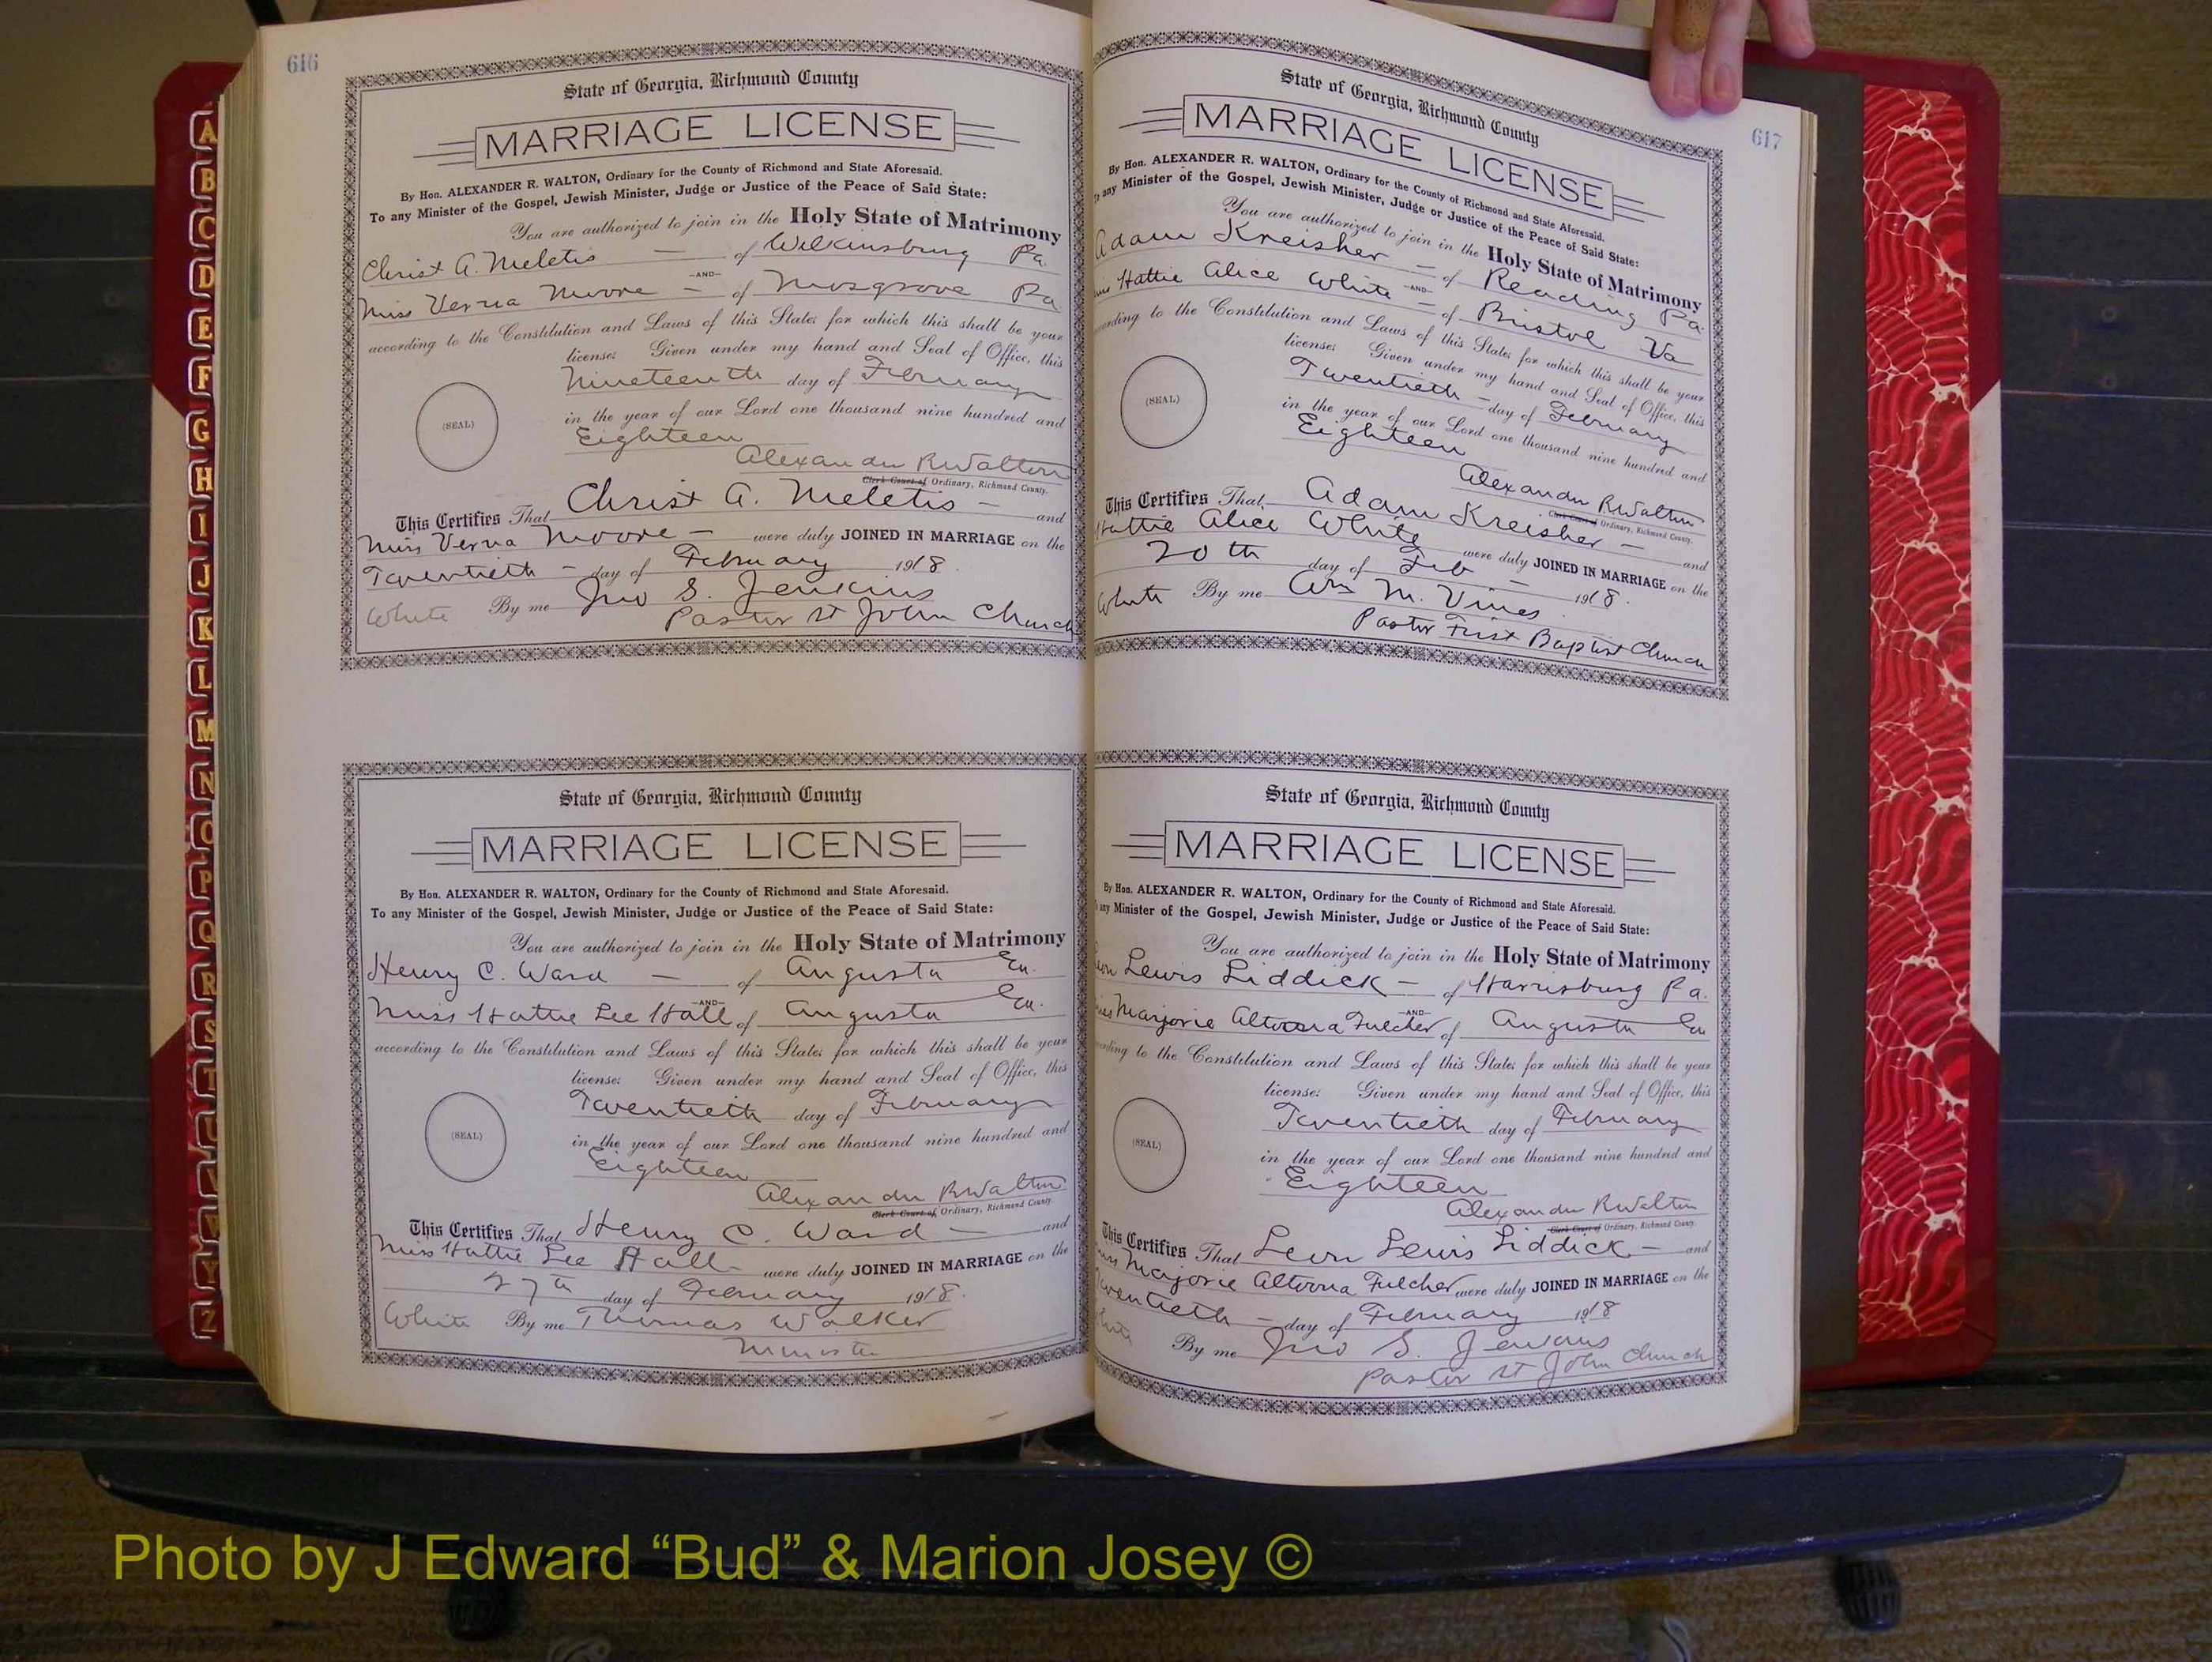 616
State of Georgia, Richmond County
MARRIAGE LICENSE
By Hon. ALEXANDER R. WALTON, Ordinary for the County of Richmond and State Aforesaid.
To any Minister of the Gospel, Jewish Minister, Judge or Justice of the Peace of Said State:
You are authorized to join in the Holy State of Matrimony
Christ A. Meletis — of Wilkinsburg Pa.
—AND—
Miss Verna Moore — of Mosgrove Pa
according to the Constitution and Laws of this State; for which this shall be your
license: Given under my hand and Seal of Office, this
Nineteenth day of February
(SEAL)
in the year of our Lord one thousand nine hundred and
Eighteen
Alexander R Walton
Clerk Court of Ordinary, Richmond County.
This Certifies That Christ A. Meletis — and
Miss Verna Moore — were duly JOINED IN MARRIAGE on the
Twentieth — day of February 1918.
White By me Jno S. Jenkins
Pastor St John Church
State of Georgia, Richmond County
MARRIAGE LICENSE
By Hon. ALEXANDER R. WALTON, Ordinary for the County of Richmond and State Aforesaid.
To any Minister of the Gospel, Jewish Minister, Judge or Justice of the Peace of Said State:
You are authorized to join in the Holy State of Matrimony
Henry C. Ward — of Augusta Ga.
—AND—
Miss Hattie Lee Hall of Augusta Ga.
according to the Constitution and Laws of this State; for which this shall be your
license: Given under my hand and Seal of Office, this
Twentieth day of February
(SEAL)
in the year of our Lord one thousand nine hundred and
Eighteen
Alexander R Walton
Clerk Court of Ordinary, Richmond County.
This Certifies That Henry C. Ward — and
Miss Hattie Lee Hall were duly JOINED IN MARRIAGE on the
27th day of February 1918.
White By me Thomas Walker
Minister
617
State of Georgia, Richmond County
MARRIAGE LICENSE
By Hon. ALEXANDER R. WALTON, Ordinary for the County of Richmond and State Aforesaid.
To any Minister of the Gospel, Jewish Minister, Judge or Justice of the Peace of Said State:
You are authorized to join in the Holy State of Matrimony
Adam Kreisher — of Reading Pa.
—AND—
Hattie Alice White — of Bristol Va
according to the Constitution and Laws of this State; for which this shall be your
license: Given under my hand and Seal of Office, this
Twentieth — day of February
(SEAL)
in the year of our Lord one thousand nine hundred and
Eighteen
Alexander R Walton
Clerk Court of Ordinary, Richmond County.
This Certifies That Adam Kreisher — and
Hattie Alice White were duly JOINED IN MARRIAGE on the
20th day of Feb — 1918.
White By me Wm M. Vines
Pastor First Baptist Church
State of Georgia, Richmond County
MARRIAGE LICENSE
By Hon. ALEXANDER R. WALTON, Ordinary for the County of Richmond and State Aforesaid.
any Minister of the Gospel, Jewish Minister, Judge or Justice of the Peace of Said State:
You are authorized to join in the Holy State of Matrimony
Lewis Liddick — of Harrisburg Pa.
—AND—
Marjorie Altoona Fulcher of Augusta Ga
according to the Constitution and Laws of this State; for which this shall be your
license: Given under my hand and Seal of Office, this
Twentieth day of February
(SEAL)
in the year of our Lord one thousand nine hundred and
Eighteen
Alexander R Walton
Clerk Court of Ordinary, Richmond County.
This Certifies That Leon Lewis Liddick — and
Marjorie Altoona Fulcher were duly JOINED IN MARRIAGE on the
Twentieth — day of February 1918
White By me Jno S. Jenkins
Pastor St John Church
A
B
C
D
E
F
G
H
I
J
K
L
M
N
O
P
Q
R
S
T
U
V
W
Y
Z
Photo by J Edward “Bud” & Marion Josey ©